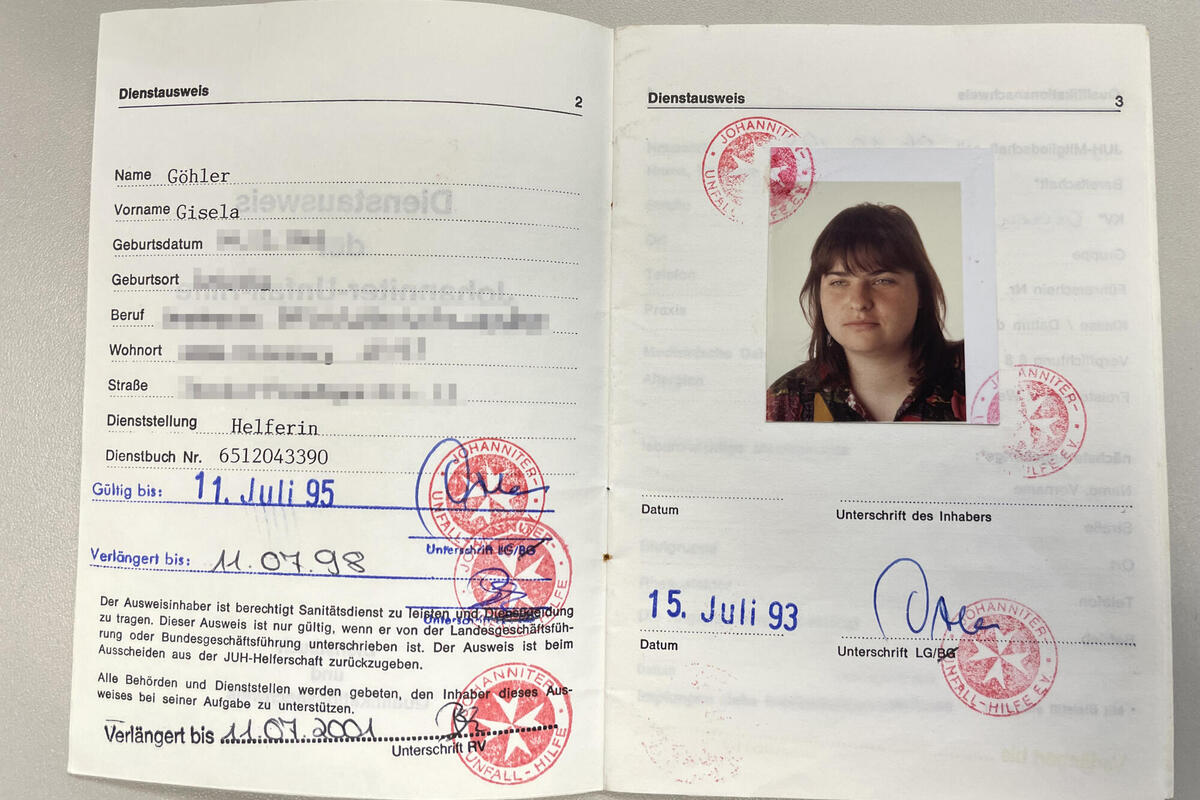 Dienstausweis
2
Name Göhler
Vorname Gisela
Geburtsdatum
Geburtsort
Beruf
Wohnort
Straße
Dienststellung Helferin
Dienstbuch Nr. 6512043390
Gültig bis: 11. Juli 95
JOHANNITER-UNFALL-HILFE E.V.
Unterschrift LG/BG
Verlängert bis: 11.07.98
JOHANNITER-UNFALL-HILFE
Unterschrift
Der Ausweisinhaber ist berechtigt Sanitätsdienst zu leisten und Dienstkleidung
zu tragen. Dieser Ausweis ist nur gültig, wenn er von der Landesgeschäftsfüh-
rung oder Bundesgeschäftsführung unterschrieben ist. Der Ausweis ist beim
Ausscheiden aus der JUH-Helferschaft zurückzugeben.
Alle Behörden und Dienststellen werden gebeten, den Inhaber dieses Aus-
weises bei seiner Aufgabe zu unterstützen.
Verlängert bis 11.07.2001
Unterschrift RV
JOHANNITER-UNFALL-HILFE
Dienstausweis
3
JOHANNITER-UNFALL-HILFE E.V.
JOHANNITER-UNFALL-HILFE E.V.
Datum
Unterschrift des Inhabers
15. Juli 93
Datum
Unterschrift LG/BG
JOHANNITER-UNFALL-HILFE E.V.